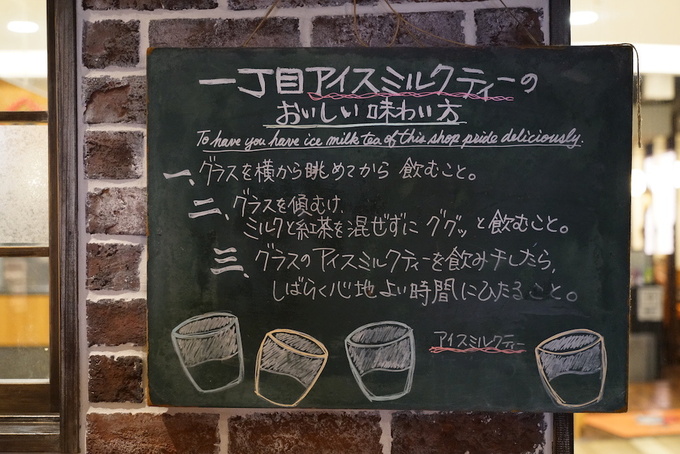 一丁目アイスミルクティーの
おいしい味わい方
To have you have ice milk tea of this shop pride deliciously.
一、グラスを横から眺めてから 飲むこと。
二、グラスを傾むけ、
ミルクと紅茶を混ぜずに ググッと飲むこと。
三、グラスのアイスミルクティーを飲み干したら、
しばらく心地よい時間にひたること。
アイスミルクティー